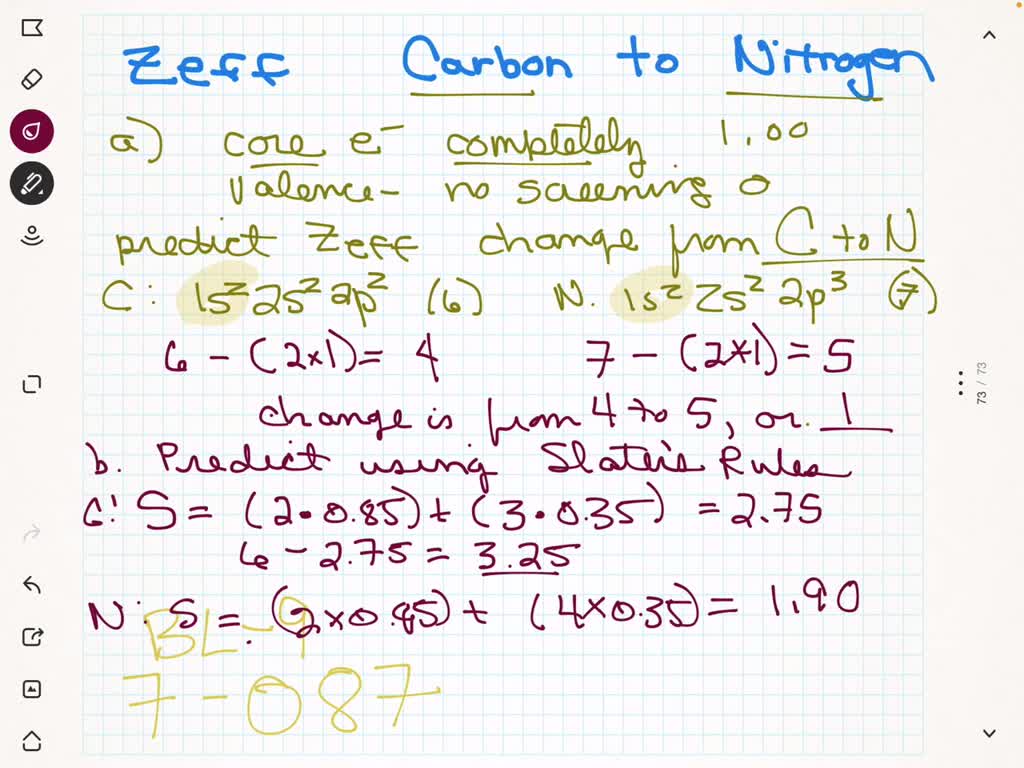 Zeff Carbon to Nitrogen
a) core e⁻ completely 1.00
Valence - no screening 0
predict Zeff change from C to N
C: 1s² 2s² 2p² (6) N. 1s² 2s² 2p³ (7)
6 - (2×1) = 4 7 - (2×1) = 5
change is from 4 to 5, or. 1
b. Predict using Slater's Rules
C: S = (2•0.85) + (3•0.35) = 2.75
6 - 2.75 = 3.25
N: S = (2×0.85) + (4×0.35) = 1.90
BL-9
7-087
73 / 73